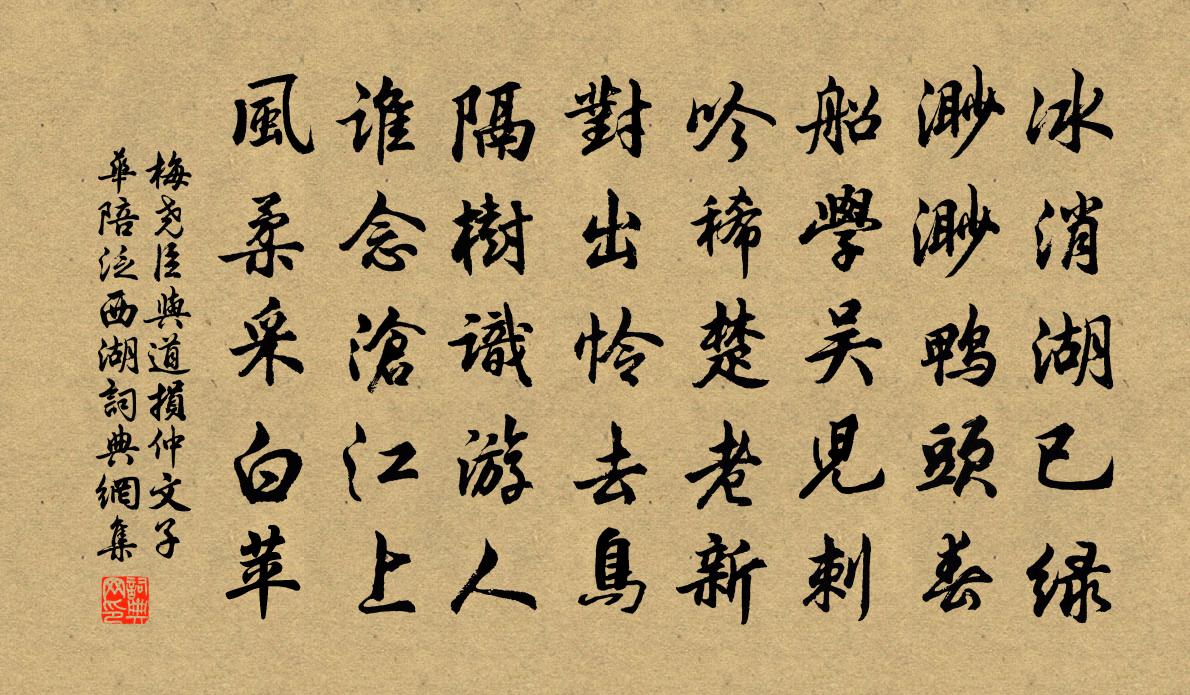 冰消湖已绿
渺渺鸭頭春
船學吴兒刺
吟稀楚老新
對出怜去鳥
隔樹識游人
谁念滄江上
風柔采白苹
梅尧臣與道損仲文子
華陪泛西湖詞典網集
詞典
网印